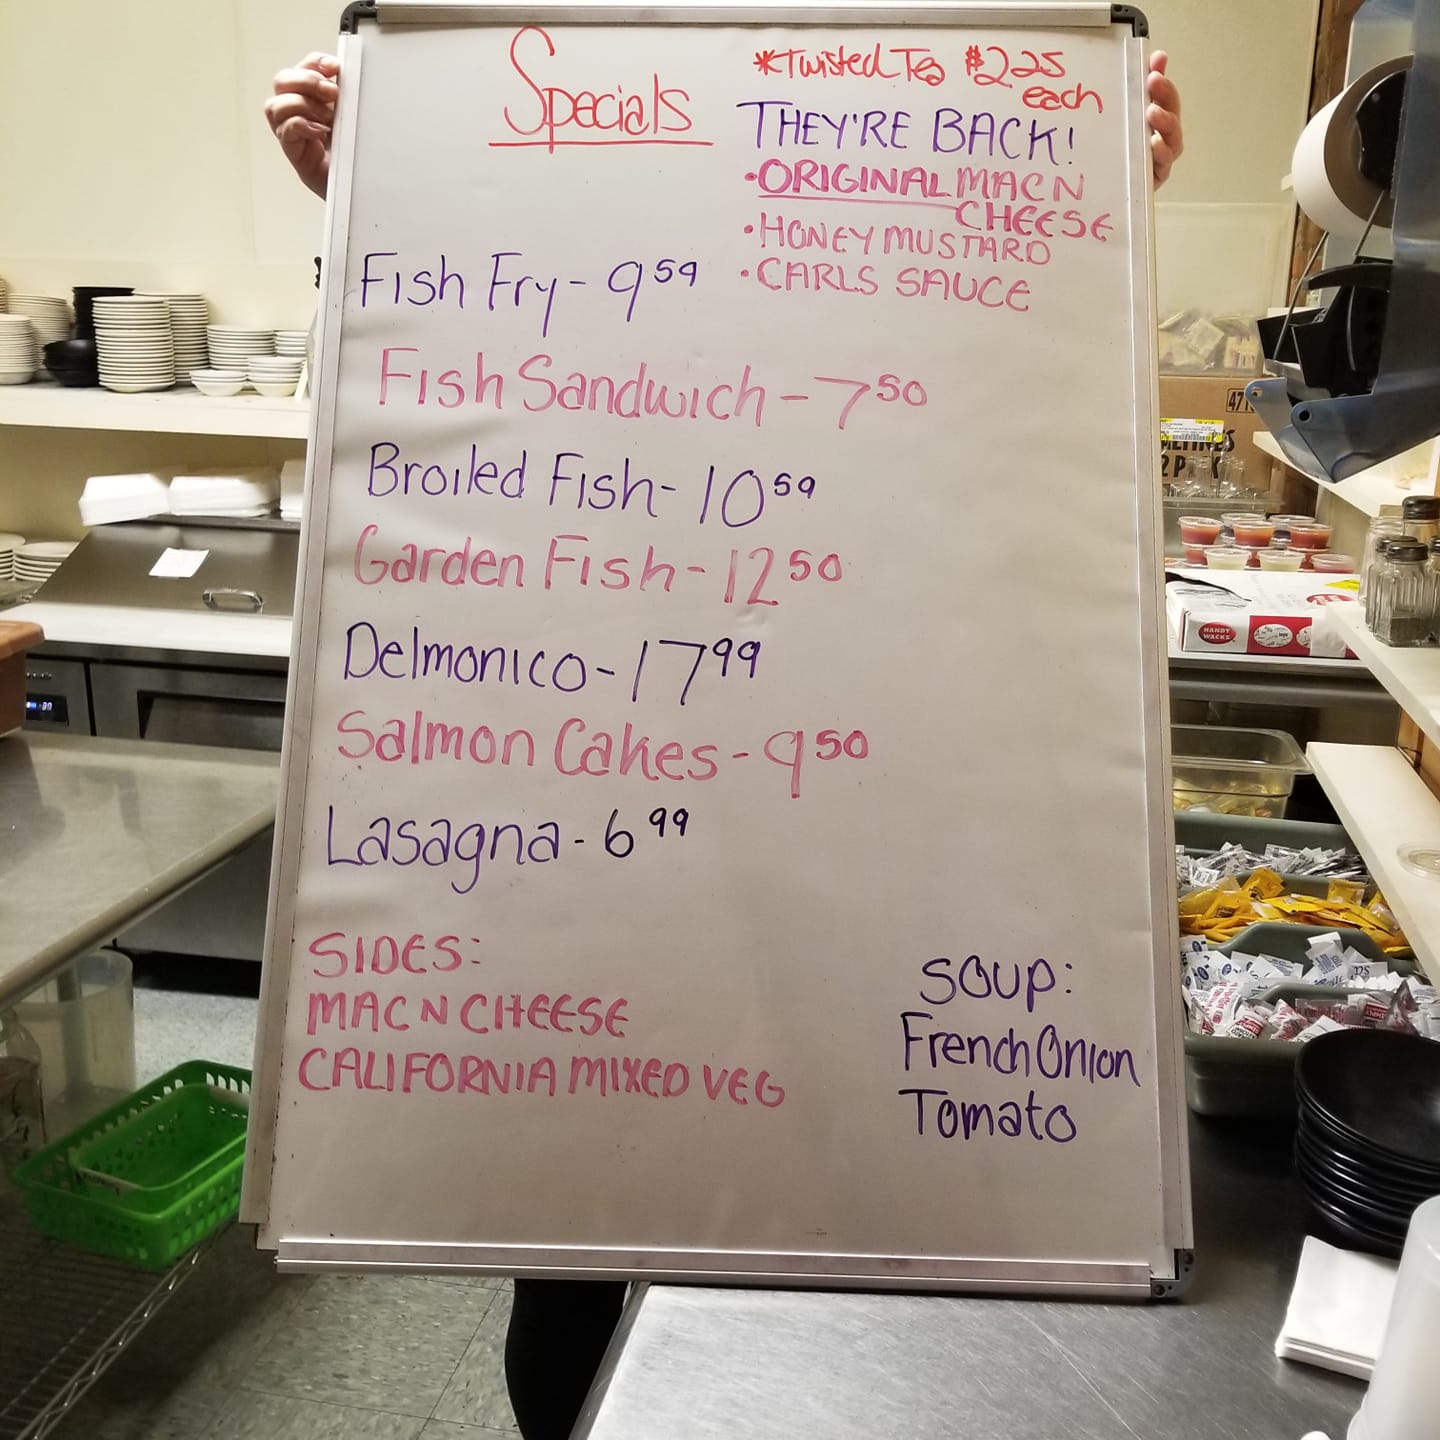 Specials
*Twisted Tea $2.25
each
THEY'RE BACK!
•ORIGINAL MAC N
CHEESE
•HONEY MUSTARD
•CARLS SAUCE
Fish Fry - 9 59
Fish Sandwich - 7 50
Broiled Fish - 10 59
Garden Fish - 12 50
Delmonico - 17 99
Salmon Cakes - 9 50
Lasagna - 6 99
SIDES:
MAC N CHEESE
CALIFORNIA MIXED VEG
SOUP:
French Onion
Tomato
HANDY
WACKS